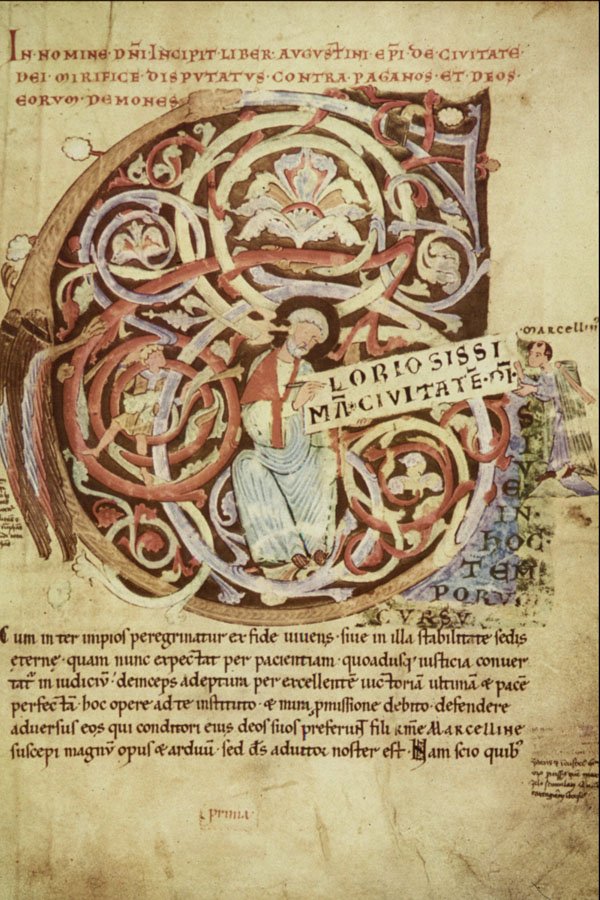 IN·NOMINE·DN̄I·INCIPIT·LIBER·AVGVSTINI·EPĪ·DE·CIVITATE·
DEI·MIRIFICE·DISPVTATVS·CONTRA·PAGANOS·ET·DEOS·
EORVM·DEMONES·
MARCELLIN
LORIOSISSI
MĀ·CIVITATĒ·DĪ·
SIVE
IN·
HOC·
TEM
PORV̄
CVRSV
Cum inter impios peregrinatur ex fide uiuens· siue in illa stabilitate sedis
ęternę· quam nunc expectat per pacientiam· quoadusq; iusticia conuer
tat̄ in iudiciv̄· deinceps adeptura per excellentē uictoriā ultimā & pacē
perfectā· hoc opere ad te instituto· & mea pmissione debito· defendere
aduersus eos qui conditori eius deos suos preferunt fili kme MARCELLINE
suscepi magnv̄ opus & arduū· sed dS adiutor noster est· Nam scio quib'
prima·